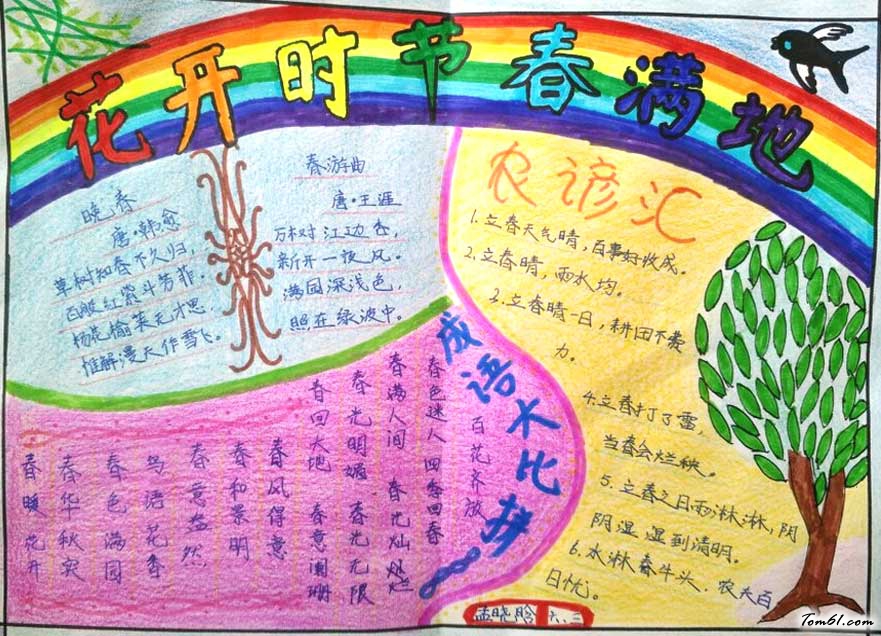 花开时节春满地
晚春
唐·韩愈
草树知春不久归,
百般红紫斗芳菲。
杨花榆荚无才思,
惟解漫天作雪飞。
春游曲
唐·王涯
万树江边杏,
新开一夜风。
满园深浅色,
照在绿波中。
农谚汇
1.立春天气晴,百事好收成。
2.立春晴,雨水均。
3.立春晴一日,耕田不费
力。
4.立春打了雷,
当春会烂秧。
5.立春之日雨淋淋,阴
阴湿湿到清明。
6.水淋春牛头,农夫百
日忧。
成语大比拼
百花齐放
春色迷人 四季回春
春满人间 春光灿烂
春光明媚 春光无限
春回大地 春意阑珊
春风得意
春和景明
春意盎然
鸟语花香
春色满园
春华秋实
春暖花开
孟晓晗 六、三
Tom61.com